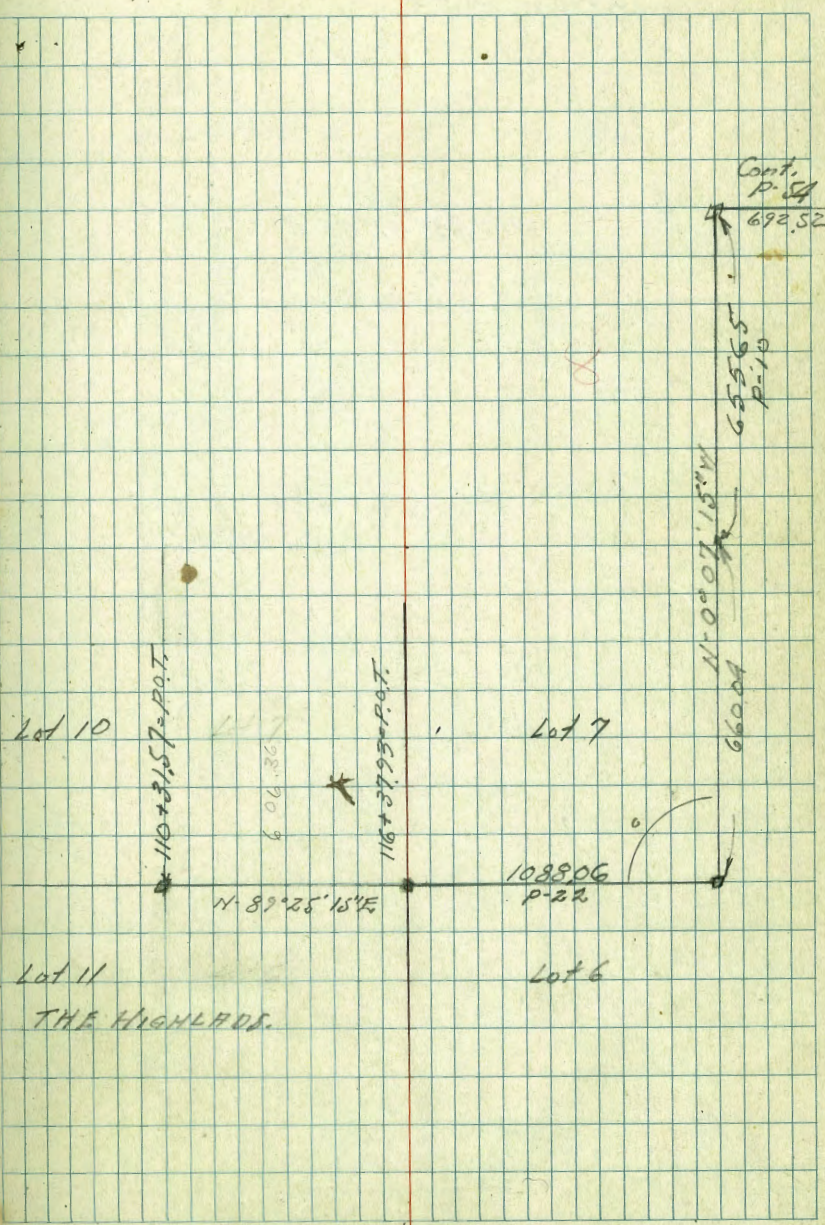 Cont.
P-54
692.52
655.65
P-10
N-0°07'15"W
660.04
110+31.57=P.O.T.
606.36
116+37.93=P.O.T.
Lot 10
Lot 7
1088.06
P-22
N-89°25'15"E
Lot 11
Lot 6
THE HIGHLADS.